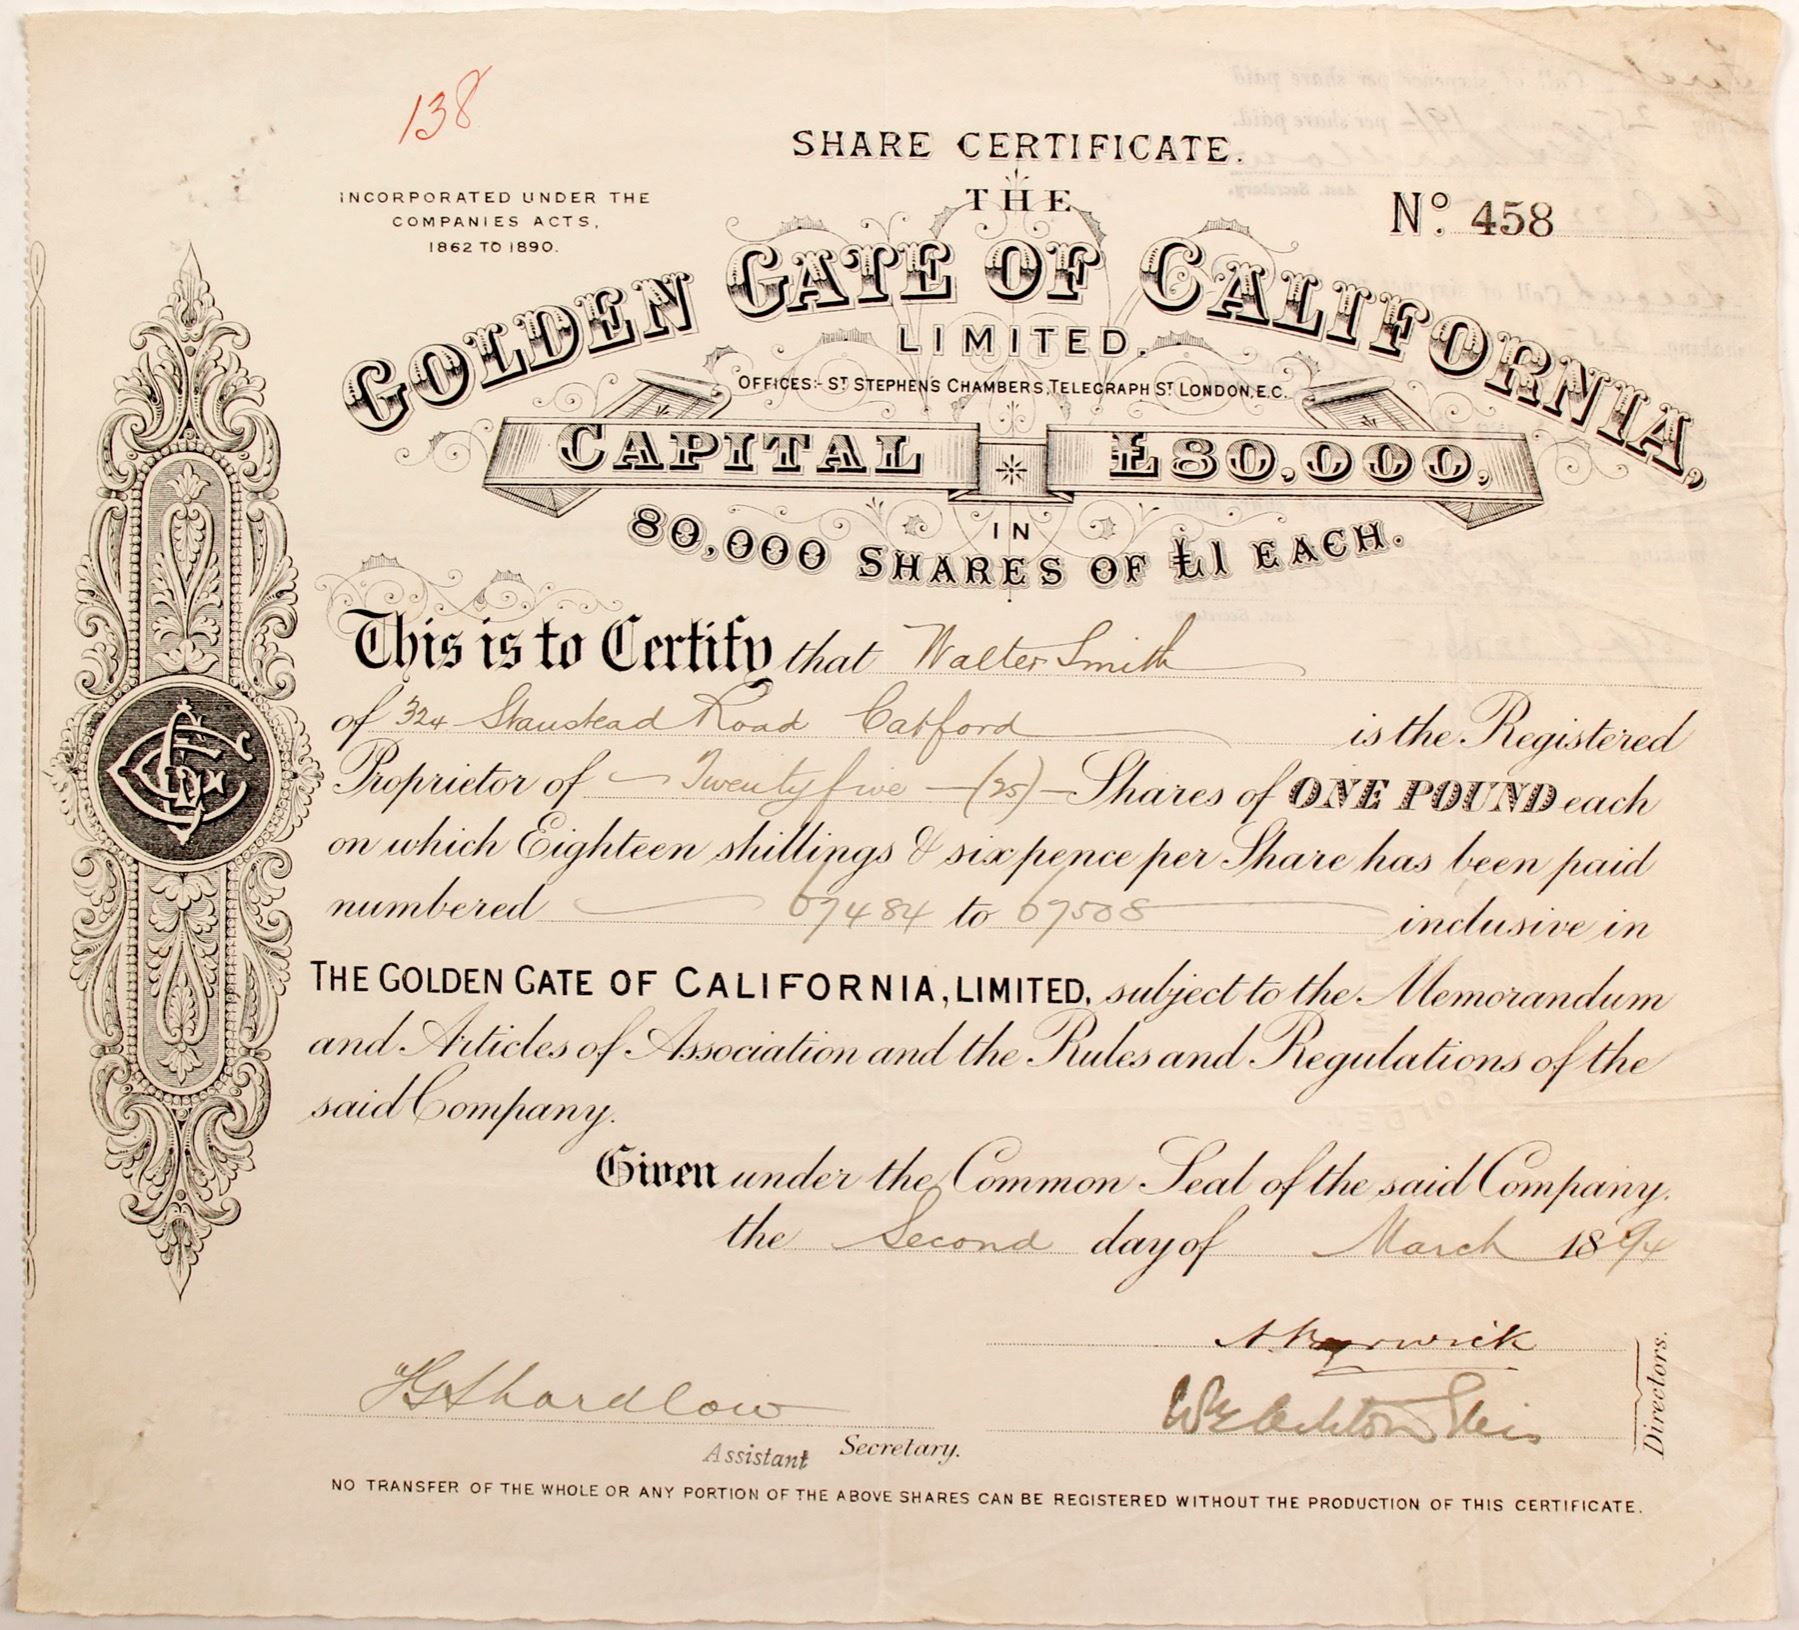 138
SHARE CERTIFICATE.
INCORPORATED UNDER THE
COMPANIES ACTS,
1862 TO 1890.
Nº. 458
THE
GOLDEN GATE OF CALIFORNIA,
LIMITED.
OFFICES:- ST STEPHENS CHAMBERS, TELEGRAPH ST LONDON, E.C.
CAPITAL £80,000,
IN
80,000 SHARES OF £1 EACH.
This is to Certify that Walter Smith
of 324 Stanstead Road Catford is the Registered
Proprietor of Twenty five (25) Shares of ONE POUND each
on which Eighteen shillings & sixpence per Share has been paid
numbered 67484 to 67508 inclusive in
THE GOLDEN GATE OF CALIFORNIA, LIMITED, subject to the Memorandum
and Articles of Association and the Rules and Regulations of the
said Company.
Given under the Common Seal of the said Company,
the Second day of March 1894
Directors.
H Shardlow
Assistant Secretary.
NO TRANSFER OF THE WHOLE OR ANY PORTION OF THE ABOVE SHARES CAN BE REGISTERED WITHOUT THE PRODUCTION OF THIS CERTIFICATE.